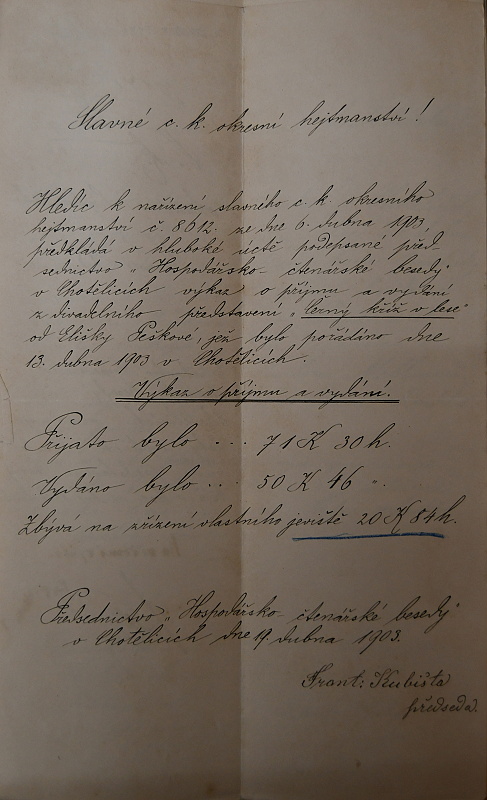 Slavné c. k. okresní hejtmanství!
Hledíc k nařízení slavného c. k. okresního
hejtmanství č. 8612. ze dne 6. dubna 1903,
předkládá v hluboké úctě podepsané před
sednictvo „Hospodářsko čtenářské besedy"
v Chotělicích výkaz o příjmu a vydání
z divadelního představení „Černý kříž v lese"
od Elišky Peškové, jež bylo pořádáno dne
13. dubna 1903 v Chotělicích.
Výkaz o příjmu a vydání.
Přijato bylo ... 71 K 30 h.
Vydáno bylo ... 50 K 46 „.
Zbývá na zřízení vlastního jeviště 20 K 84 h.
Předsednictvo „Hospodářsko čtenářské besedy"
v Chotělicích dne 19. dubna 1903.
Frant: Kubišta
předseda.